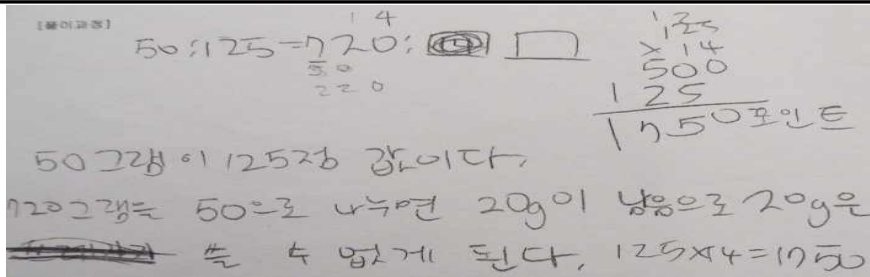 [풀이과정]
50:125=720:
14
50
220
125
×14
500
125
1750포인트
50그램이 125점 값이다,
720그램는 50으로 나누면 20g이 남음으로 20g은
쓸 수 없게 된다, 125×14=1750